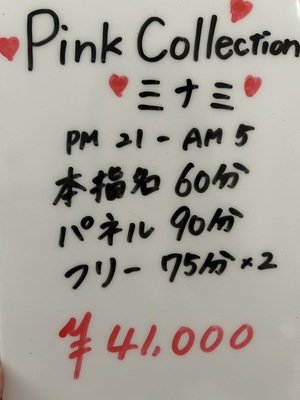 Pink Collection
ミナミ
PM 21 - AM 5
本指名 60分
パネル 90分
フリー 75分×2
¥41,000